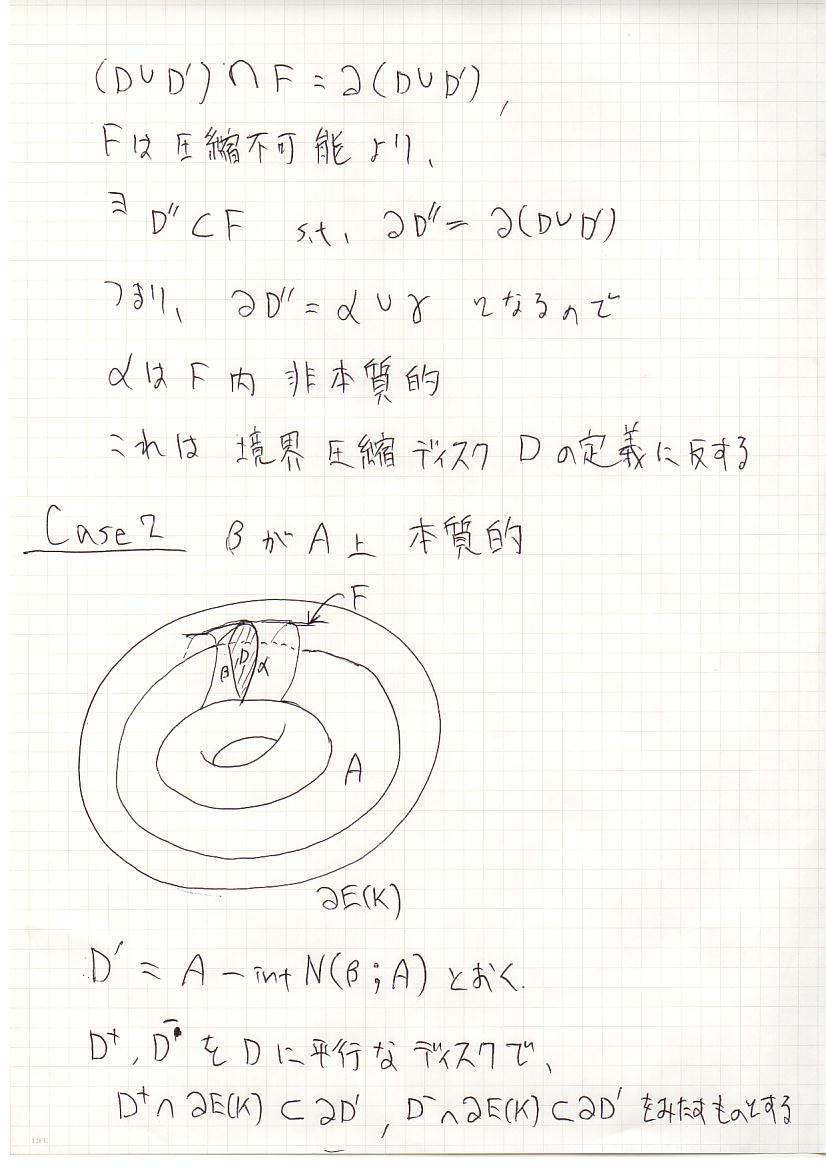 (D∪D')∩F = ∂(D∪D'),
Fは圧縮不可能より、
∃D''⊂F s.t. ∂D''= ∂(D∪D')
つまり、∂D''= α∪γ となるので
αはF内非本質的
これは境界圧縮ディスクDの定義に反する
Case2 βがA上本質的
F
β D α
A
∂E(K)
D' = A − int N(β;A) とおく.
D⁺, D⁻をDに平行なディスクで、
D⁺∩∂E(K)⊂∂D', D⁻∩∂E(K)⊂∂D' をみたすものとする